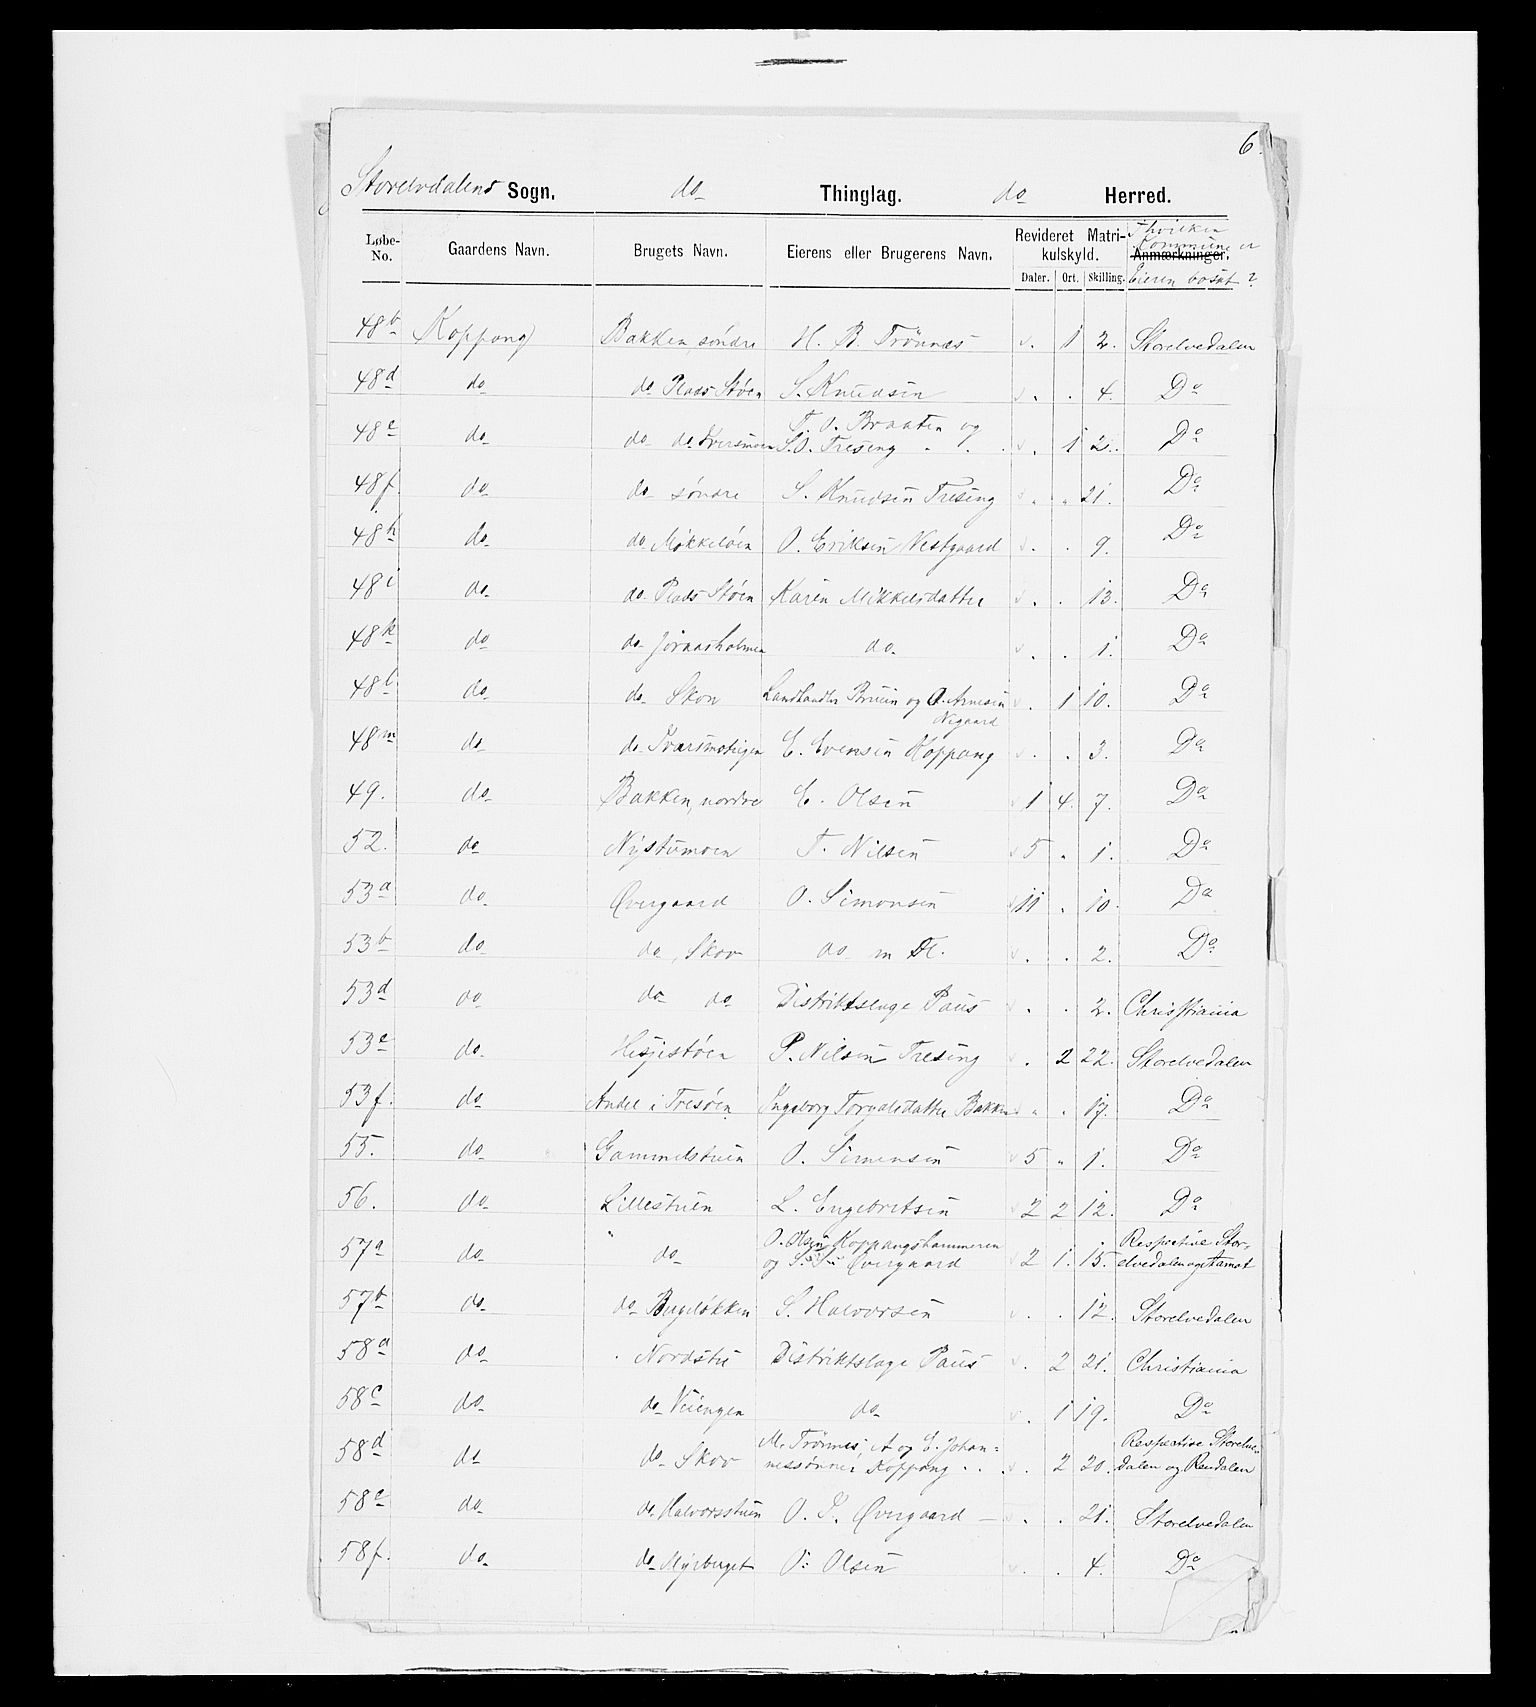 6.
Storelvdalens Sogn. do Thinglag. do Herred.
Løbe-No. Gaardens Navn. Brugets Navn. Eierens eller Brugerens Navn. Revideret Matrikulskyld. Daler. Ort. Skilling. Anmærkninger. I hvilken Kommune er Eieren bosat?
48b Koppang Bakken, søndre H. B. Trønnæs . 1 2. Storelvedalen
48d do do Plads Støen S. Knudsen . . 4. Do
48e do do do Iversmoen T. O. Braaten og
S. O. Treseng . 1 2. Do
48f. do do søndre S. Knudsen Treseng " " 21. Do
48h do do Mokkeløen O. Eriksen Vestgaard . . 9. Do
48i do do Plads Støen Karen Mikkelsdatter . . 13. Do
48k do do Jonasholmen do . . 1. Do
48l do do Skov Landhandler Bruun og O. Arnesen
Nygaard . 1 10. Do
48m do do Ivarsmoteigen E. Evensen Koppang . . 3. Do
49. do Bakken, nordre E. Olsen 1 4. 7. Do
52. do Nystumoen T. Nilsen 5 " 1. Do
53a do Øvergaard O. Simonsen 11 . 10. Do
53b do do, Skov do m Fl. . . 2. Do
53d do do do Distriktslæge Paus . . 2. Christiania
53e do Hesjestøen P. Nilsen Treseng . 2 22. Storelvedalen
53f. do Andel i Tresøen Ingeborg Torgalsdatter Bakken " . 17. Do
55. do Gammelstuen O. Simensen 5 " 1. Do
56. do Lillestuen L. Engebretsen 2 2 12. Do
57a do do O. Olsen Koppangshammeren
og S. Øvergaard 2 1. 15. Respective Storelvedalen og Aamot
57b do do Bugeløkken S. Halvorsen . . 12. Storelvedalen
58a do Nordstu Distriktslæge Paus . 2 21. Christiania
58c do do Veiengen do . 1 19. Do
58d do do Skov M. Trønnes, A og E. Johan=
nessønner Koppang . 2 20. Respective Storelvedalen og Rendalen
58e do do Halvorsstuen O. I. Øvergaard — . . 21. Storelvedalen
58f. do do Myrberget O: Olsen . . 4. Do